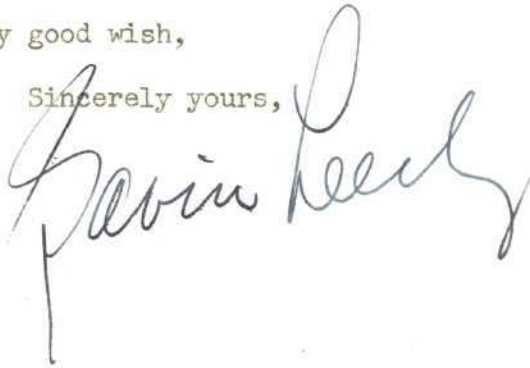 y good wish,
Sincerely yours,
Gavin Leech